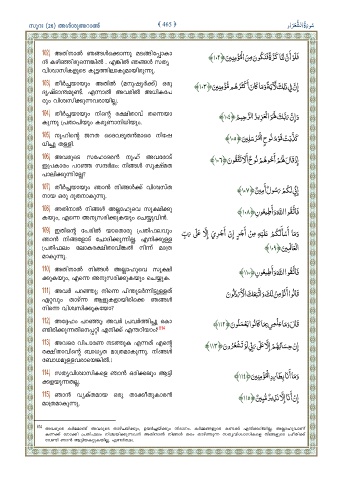 സൂറ (26) അശ്ശുഅറാഅ്
﴾ 465 ﴿
سورة الشعراء
102) അതിനാൽ ഞങ്ങൾക്കൊന്നു മടങ്ങിപ്പോകാ
ൻ കഴിഞ്ഞിരുന്നെങ്കിൽ , എങ്കിൽ ഞങ്ങൾ സത്യ
വിശ്വാസികളുടെ കൂട്ടത്തിലാകുമായിരുന്നു.
فَلَوْ أَنَّ لَنَا كَرَّةً فَنَكُونَ مِنَ الْمُؤْمِنِينَ ﴿١٠٢﴾
103) തീർച്ചയായും അതിൽ (മനുഷ്യർക്ക്) ഒരു
ദൃഷ്ടാന്തമുണ്ട്. എന്നാൽ അവരിൽ അധികപേ
രും വിശ്വസിക്കുന്നവരായില്ല.
إِنَّ فِي ذَٰلِكَ لَآيَةً وَمَا كَانَ أَكْثَرُهُم مُّؤْمِنِينَ ﴿١٠٣﴾
104) തീർച്ചയായും നിന്റെ രക്ഷിതാവ് തന്നെയാ
കുന്നു പ്രതാപിയും കരുണാനിധിയും.
وَإِنَّ رَبَّكَ لَهُوَ الْعَزِيزُ الرَّحِيمُ ﴿١٠٤﴾
105) നൂഹിന്റെ ജനത ദൈവദൂതൻമാരെ നിഷേ
ധിച്ചു തള്ളി.
كَذَّبَتْ قَوْمُ نُوحٍ الْمُرْسَلِينَ ﴿١٠٥﴾
106) അവരുടെ സഹോദരൻ നൂഹ് അവരോട്
ഇപ്രകാരം പറഞ്ഞ സന്ദർഭം: നിങ്ങൾ സൂക്ഷ്മത
പാലിക്കുന്നില്ലേ?
إِذْ قَالَ لَهُمْ أَخُوهُمْ نُوحٌ أَلَا تَتَّقُونَ ﴿١٠٦﴾
107) തീർച്ചയായും ഞാൻ നിങ്ങൾക്ക് വിശ്വസ്ത
നായ ഒരു ദൂതനാകുന്നു.
إِنِّي لَكُمْ رَسُولٌ أَمِينٌ ﴿١٠٧﴾
108) അതിനാൽ നിങ്ങൾ അല്ലാഹുവെ സൂക്ഷിക്കു
കയും, എന്നെ അനുസരിക്കുകയും ചെയ്യുവിൻ.
فَاتَّقُوا اللَّهَ وَأَطِيعُونِ ﴿١٠٨﴾
109) ഇതിന്റെ പേരിൽ യാതൊരു പ്രതിഫലവും
ഞാൻ നിങ്ങളോട് ചോദിക്കുന്നില്ല. എനിക്കുള്ള
പ്രതിഫലം ലോകരക്ഷിതാവിങ്കൽ നിന്ന് മാത്ര
മാകുന്നു.
وَمَا أَسْأَلُكُمْ عَلَيْهِ مِنْ أَجْرٍ إِنْ أَجْرِيَ إِلَّا عَلَىٰ رَبِّ
الْعَالَمِينَ ﴿١٠٩﴾
110) അതിനാൽ നിങ്ങൾ അല്ലാഹുവെ സൂക്ഷി
ക്കുകയും, എന്നെ അനുസരിക്കുകയും ചെയ്യുക.
فَاتَّقُوا اللَّهَ وَأَطِيعُونِ ﴿١١٠﴾
111) അവർ പറഞ്ഞു: നിന്നെ പിന്തുടർന്നിട്ടുള്ളത്
ഏറ്റവും താഴ്ന്ന ആളുകളായിരിക്കെ ഞങ്ങൾ
നിന്നെ വിശ്വസിക്കുകയോ?
قَالُوا أَنُؤْمِنُ لَكَ وَاتَّبَعَكَ الْأَرْذَلُونَ
112) അദ്ദേഹം പറഞ്ഞു: അവർ പ്രവർത്തിച്ചു കൊ
ണ്ടിരിക്കുന്നതിനെപ്പറ്റി എനിക്ക് എന്തറിയാം?
قَالَ وَمَا عِلْمِي بِمَا كَانُوا يَعْمَلُونَ ﴿١١٢﴾
113) അവരെ വിചാരണ നടത്തുക എന്നത് എന്റെ
രക്ഷിതാവിന്റെ ബാധ്യത മാത്രമാകുന്നു. നിങ്ങൾ
ബോധമുള്ളവരായെങ്കിൽ !
إِنْ حِسَابُهُمْ إِلَّا عَلَىٰ رَبِّي لَوْ تَشْعُرُونَ ﴿١١٣﴾
114) സത്യവിശ്വാസികളെ ഞാൻ ഒരിക്കലും ആട്ടി
ക്കളയുന്നതല്ല.
وَمَا أَنَا بِطَارِدِ الْمُؤْمِنِينَ ﴿١١٤﴾
115) ഞാൻ വ്യക്തമായ ഒരു താക്കീതുകാരൻ
മാത്രമാകുന്നു.
إِنْ أَنَا إِلَّا نَذِيرٌ مُّبِينٌ ﴿١١٥﴾